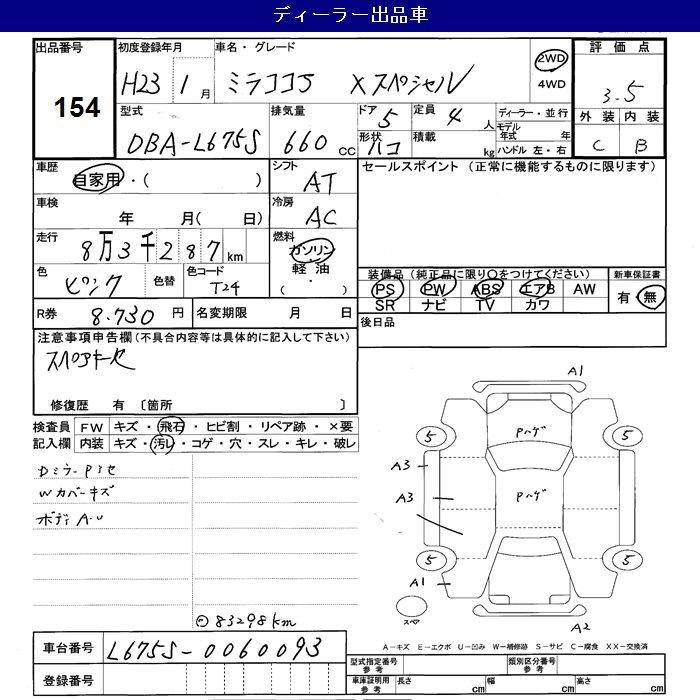 ディーラー出品車
出品番号 初度登録年月 車名・グレード 評価点
154
H23 1月 ミラココア Xスペシャル 2WD 4WD 3.5
型式 排気量 ドア 5 定員 4人 ディーラー・並行 外装 内装
DBA-L675S 660cc 形状 ハコ 積載 kg モデル年式 年 ハンドル 左・右 C B
車歴 自家用・( ) シフト AT セールスポイント (正常に機能するものに限ります)
車検 年 月( 日) 冷房 AC
走行 8万3千287km 燃料 ガソリン 軽油 ( ・ )
色 ピンク 色替 色コード T24 装備品(純正品に限り○をつけてください) 新車保証書
PS PW ABS エアB AW 有・無
SR ナビ TV カワ
R券 8.730円 名変期限 月 日 後日品
注意事項申告欄(不具合内容等は具体的に記入して下さい)
スペアキーセ
修復歴 有 〔箇所 〕
検査員 FW キズ・飛石・ヒビ割・リペア跡・×要
記入欄 内装 キズ・汚レ・コゲ・穴・スレ・キレ・破レ
Dミラー Pミセ
Wカバーキズ
ボディ A・U
83298km
A1
Pハゲ
5 5
A3
A3 Pハゲ
5 5
A1
スペア
A2
A-キズ E-エクボ U-凹み W-補修跡 S-サビ C-腐食 XX-交換済
車台番号 L675S-0060093
型式指定番号 参考 類別区分番号 参考
登録番号 車庫証明用 参考 長さ cm 幅 cm 高さ cm